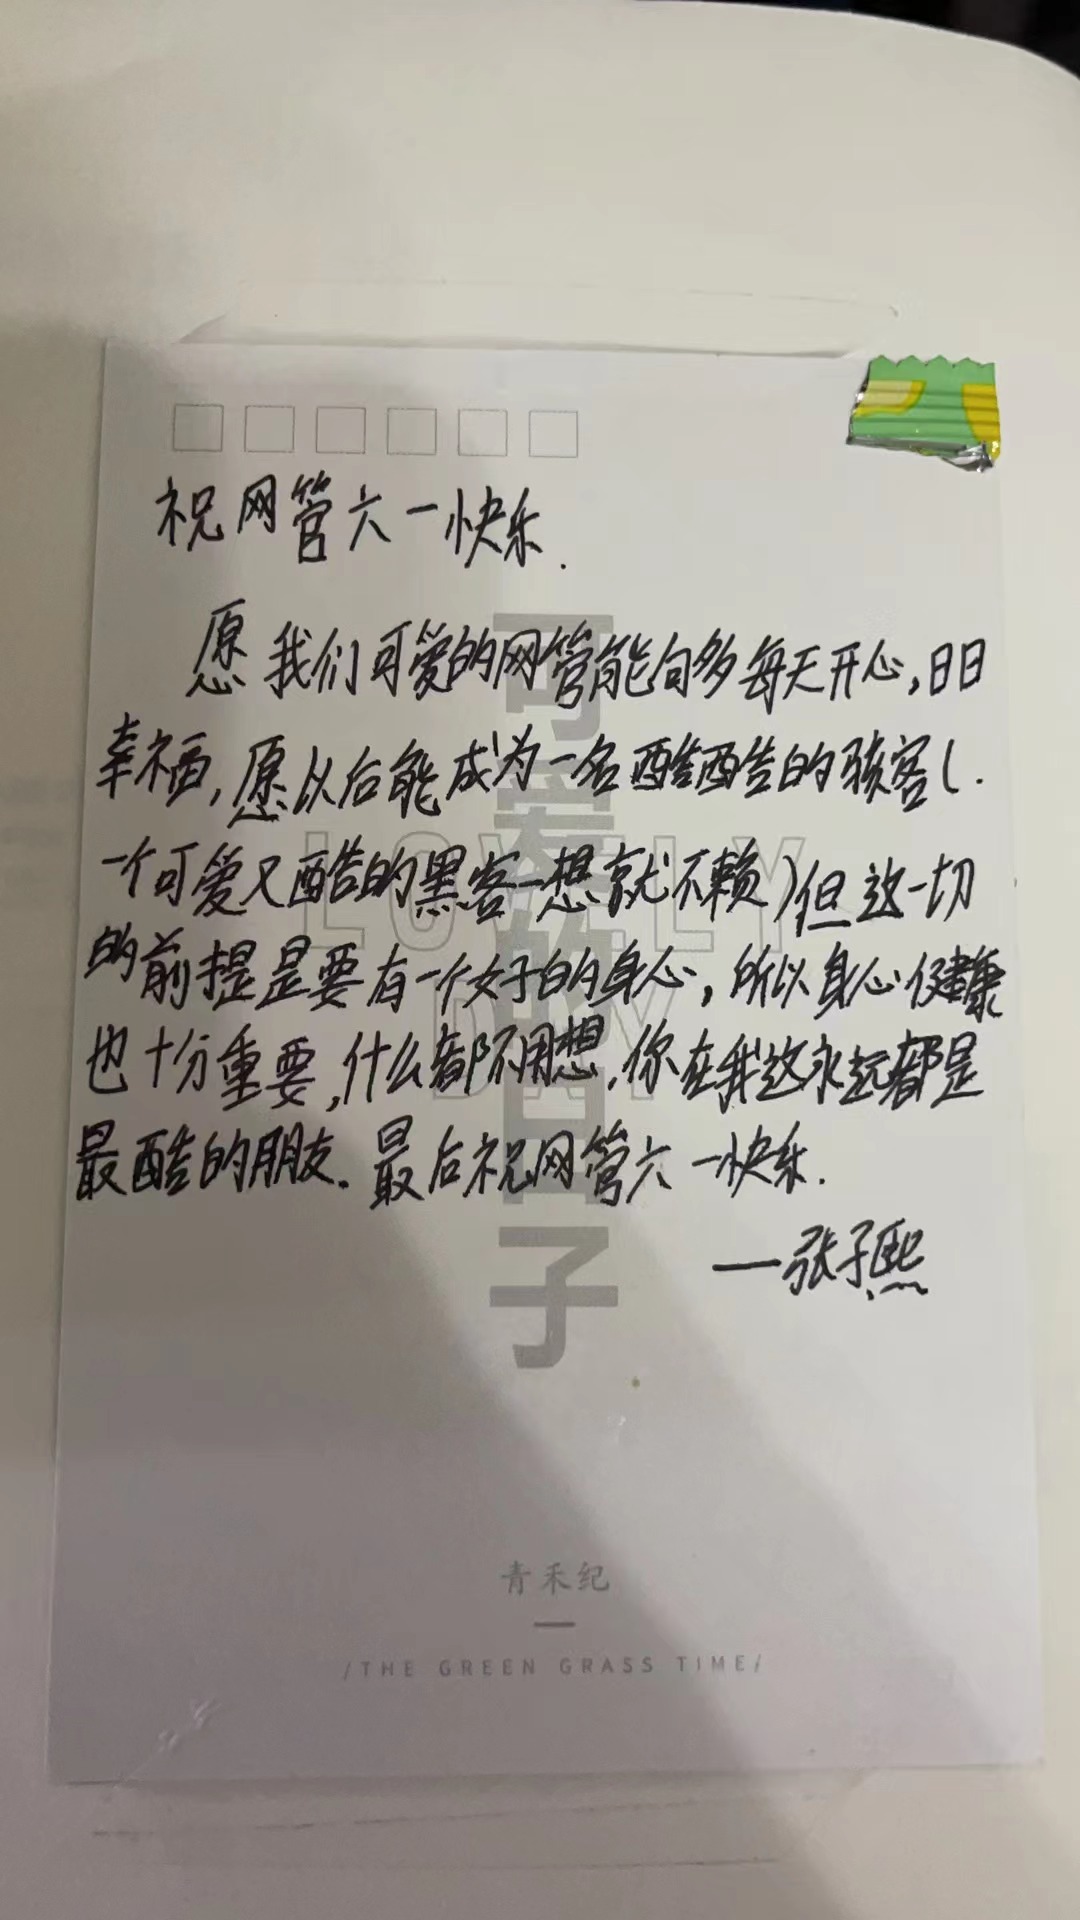 祝网管六一快乐.
愿我们可爱的网管能向多每天开心,日日
幸福,愿以后能成为一名酷酷的骇客(.
一个可爱又酷的黑客一想就不赖)但这一切
的前提是要有一个好的身心,所以身心健康
也十分重要,什么都不用想,你在我这永远都是
最酷的朋友.最后祝网管六一快乐.
—张子熙
可爱的日子
LOVELY
DAY
青禾纪
/THE GREEN GRASS TIME/